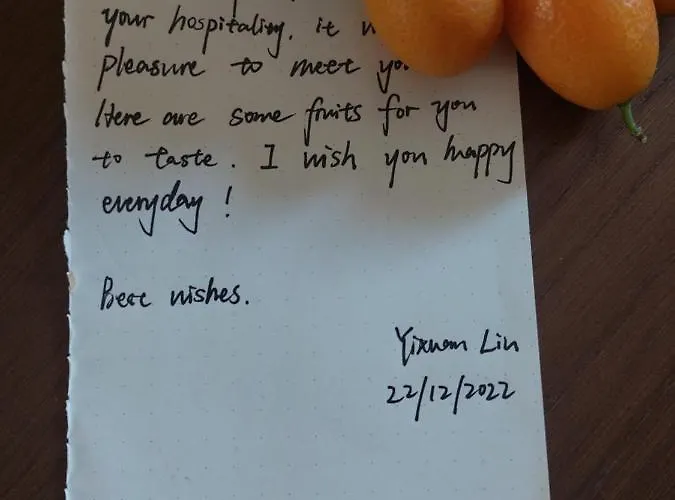 your hospitality. it
pleasure to meet
Here are some fruits for you
to taste. I wish you happy
everyday!
Best wishes.
Yixuan Lin
22/12/2022